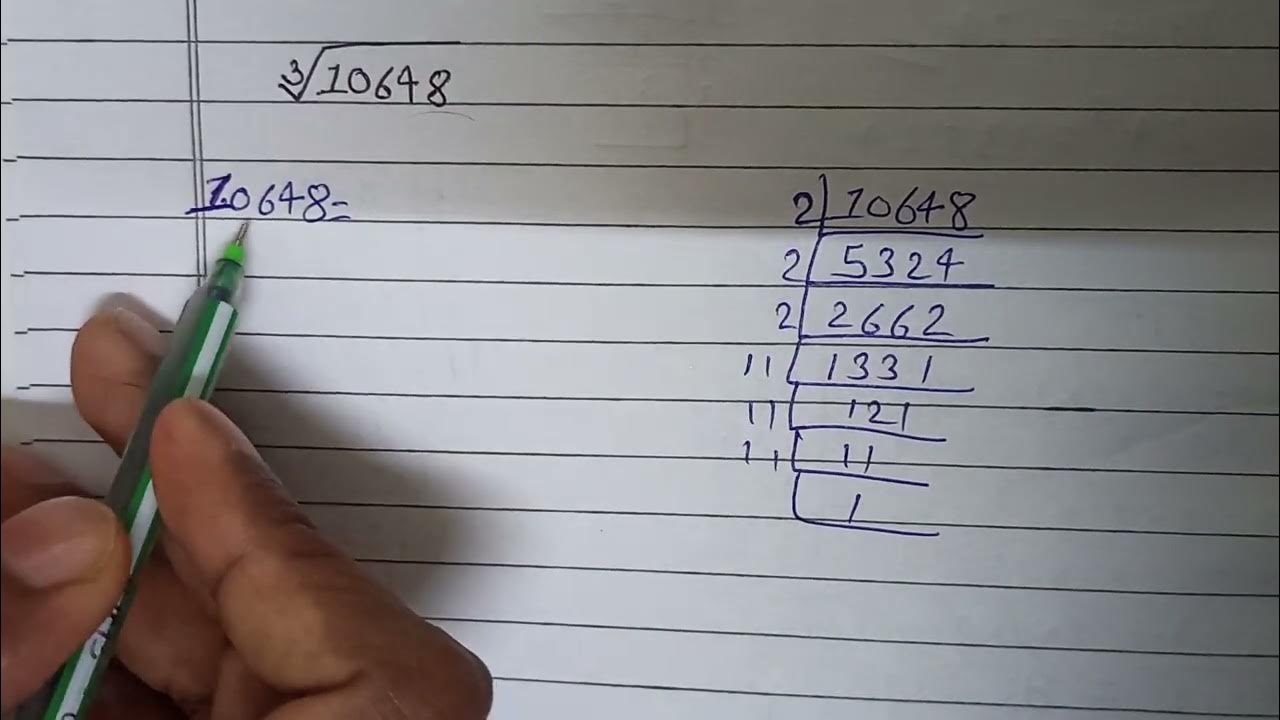 ∛10648
10648=
2 | 10648
2 | 5324
2 | 2662
11 | 1331
11 | 121
11 | 11
1